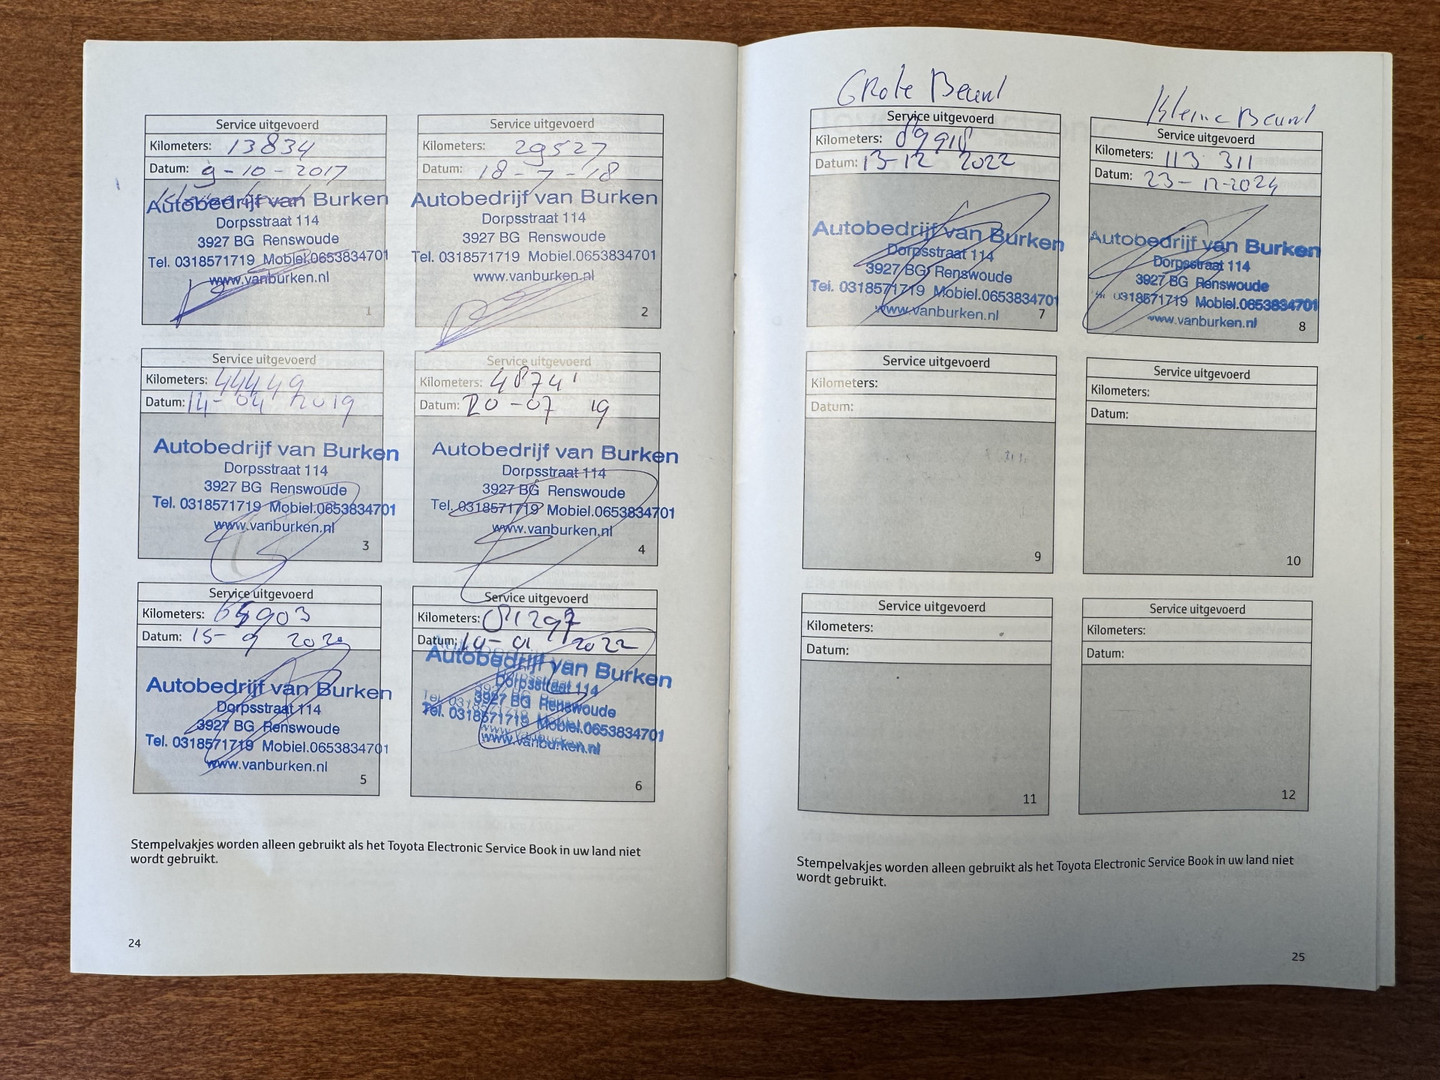 Service uitgevoerd
Kilometers: 13834
Datum: 9-10-2017
Autobedrijf van Burken
Dorpsstraat 114
3927 BG Renswoude
Tel. 0318571719 Mobiel.0653834701
www.vanburken.nl
1
Service uitgevoerd
Kilometers: 29527
Datum: 18-7-'18
Autobedrijf van Burken
Dorpsstraat 114
3927 BG Renswoude
Tel. 0318571719 Mobiel.0653834701
www.vanburken.nl
2
Service uitgevoerd
Kilometers: 44449
Datum: 14-04 2019
Autobedrijf van Burken
Dorpsstraat 114
3927 BG Renswoude
Tel. 0318571719 Mobiel.0653834701
www.vanburken.nl
3
Service uitgevoerd
Kilometers: 48741
Datum: 20-07 19
Autobedrijf van Burken
Dorpsstraat 114
3927 BG Renswoude
Tel. 0318571719 Mobiel.0653834701
www.vanburken.nl
4
Service uitgevoerd
Kilometers:
Datum: 15-9 2020
Autobedrijf van Burken
Dorpsstraat 114
3927 BG Renswoude
Tel. 0318571719 Mobiel.0653834701
www.vanburken.nl
5
Service uitgevoerd
Kilometers: 81297
Datum: 2022
Autobedrijf van Burken
Dorpsstraat 114
3927 BG Renswoude
Tel. 0318571719 Mobiel.0653834701
www.vanburken.nl
6
Stempelvakjes worden alleen gebruikt als het Toyota Electronic Service Book in uw land niet
wordt gebruikt.
24
Grote Beurt
Service uitgevoerd
Kilometers: 89918
Datum: 13-12 2022
Autobedrijf van Burken
Dorpsstraat 114
3927 BG Renswoude
Tel. 0318571719 Mobiel.0653834701
www.vanburken.nl
7
Kleine Beurt
Service uitgevoerd
Kilometers: 113 311
Datum: 23-12-2024
Autobedrijf van Burken
Dorpsstraat 114
3927 BG Renswoude
0318571719 Mobiel.0653834701
www.vanburken.nl
8
Service uitgevoerd
Kilometers:
Datum:
9
Service uitgevoerd
Kilometers:
Datum:
10
Service uitgevoerd
Kilometers:
Datum:
11
Service uitgevoerd
Kilometers:
Datum:
12
Stempelvakjes worden alleen gebruikt als het Toyota Electronic Service Book in uw land niet
wordt gebruikt.
25